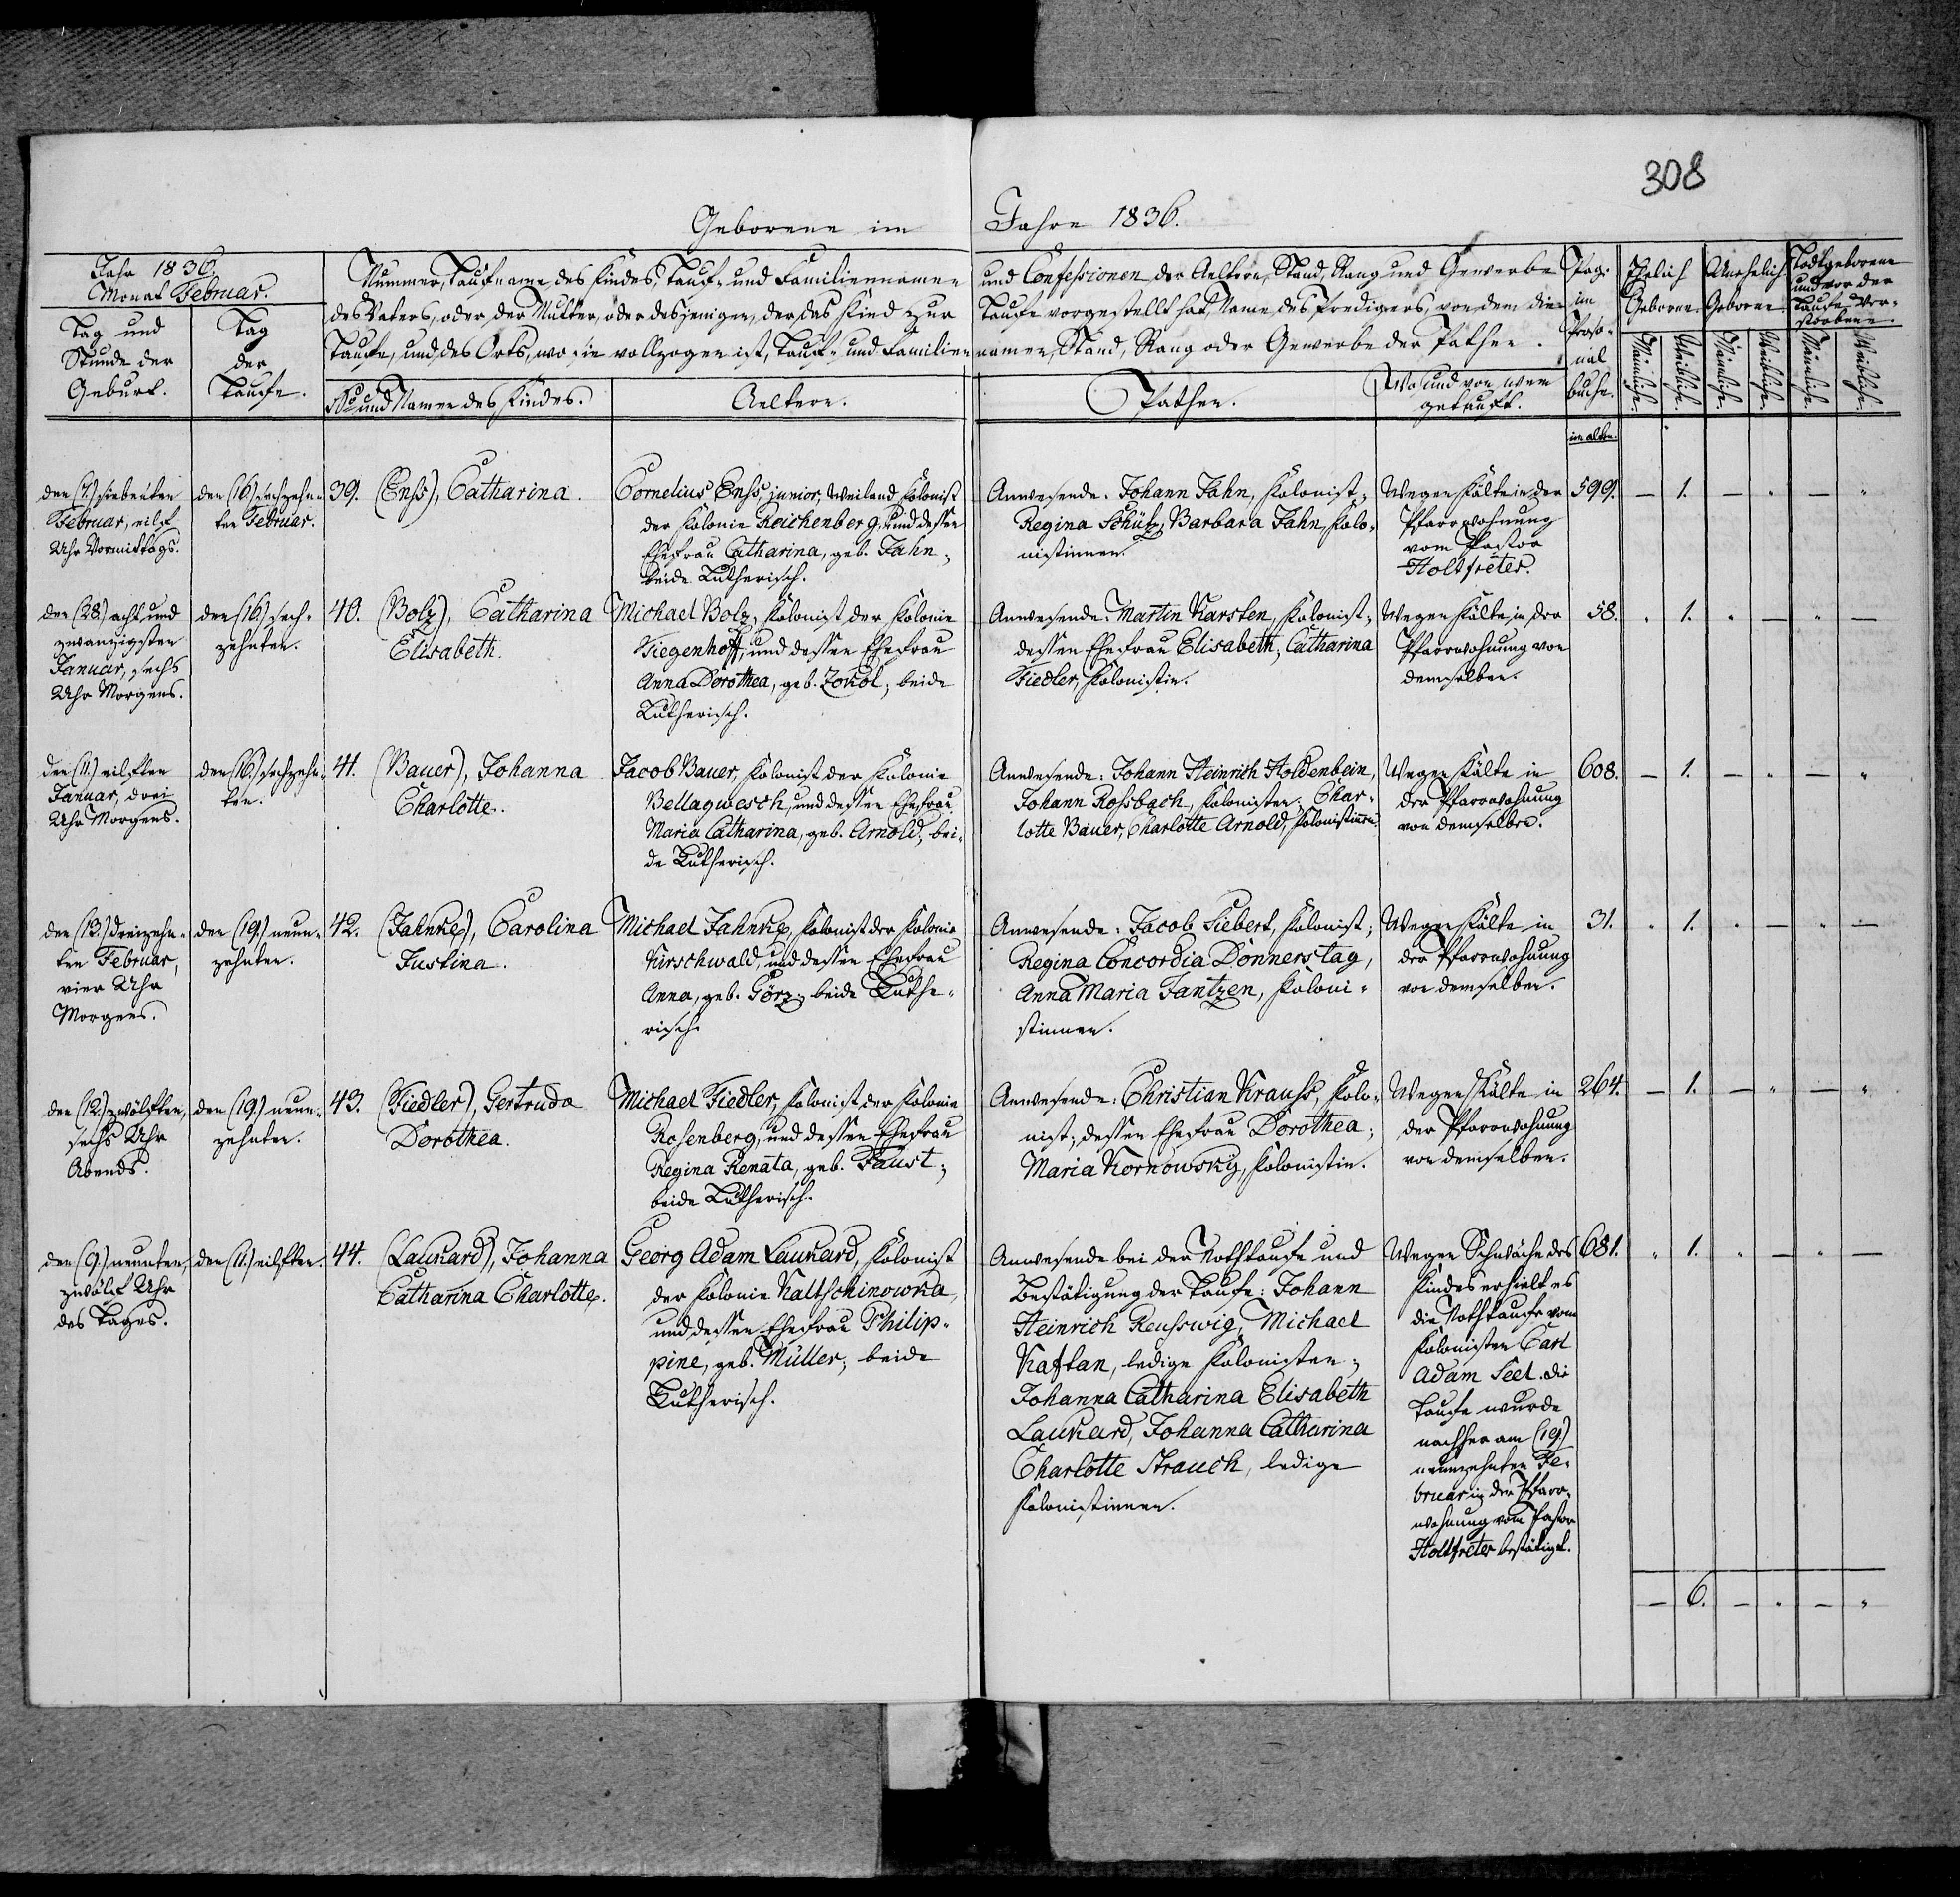 308
Geborene im Jahre 1836.
Jahr 1836
Monat Februar.
Tag und
Stunde der
Geburt.
Tag
der
Taufe.
Nummer, Taufname des Kindes, Tauf- und Familiennamen und Confessionen der Aeltern, Stand, Rang und Gewerbe
des Vaters, oder der Mutter, oder desjenigen, der das Kind zur Taufe vorgestellt hat, Name des Predigers, von dem die
Taufe, und des Orts, wo sie vollzogen ist, Tauf- und Familiennamen, Stand, Rang oder Gewerbe der Pathen.
No und Namen des Kindes.
Aeltern.
Pathen.
Wo und von wem
getauft.
Pag.
im
Perso-
nal
buche.
Ehelich
Geborene.
Unehelich
Geborene.
Todtgeborene
und vor der
Taufe Ver-
storbene.
Männliche.
Weibliche.
Männliche.
Weibliche.
Männliche.
Weibliche.
im alten.
den (7.) siebenten
Februar, eilf
Uhr Vormittags.
den (16.) sechzehn-
ten Februar.
39. (Enss), Catharina.
Cornelius Enss, junior, weiland Kolonist
der Kolonie Reichenberg, und dessen
Ehefrau Catharina, geb. Jahn;
beide Lutherisch.
Anwesende: Johann Jahn, Kolonist;
Regina Schütz, Barbara Jahn, Kolo-
nistinnen.
Wegen Kälte in der
Pfarrwohnung
vom Pastor
Holtfreter.
599. — 1. — " — "
den (28.) acht und
zwanzigsten
Januar, sechs
Uhr Morgens.
den (16.) sech-
zehnten.
40. (Bolz), Catharina
Elisabeth.
Michael Bolz, Kolonist der Kolonie
Tiegenhoff, und dessen Ehefrau
Anna Dorothea, geb. Zokol; beide
Lutherisch.
Anwesende: Martin Karsten, Kolonist;
dessen Ehefrau Elisabeth; Catharina
Fiedler, Kolonistin.
Wegen Kälte in der
Pfarrwohnung von
demselben.
58. " 1. " — " —
den (11.) eilften
Januar, drei
Uhr Morgens.
den (16.) sechzehn-
ten.
41. (Bauer), Johanna
Charlotte.
Jacob Bauer, Kolonist der Kolonie
Bellagwesch, und dessen Ehefrau
Maria Catharina, geb. Arnold; bei-
de Lutherisch.
Anwesende: Johann Heinrich Holdenbein,
Johann Rossbach, Kolonisten; Char-
lotte Bauer, Charlotte Arnold, Kolonistinnen.
Wegen Kälte in
der Pfarrwohnung
von demselben.
608. — 1. — " — "
den (13.) dreizehn-
ten Februar,
vier Uhr
Morgens.
den (19.) neun-
zehnten.
42. (Jahnke), Carolina
Justina.
Michael Jahnke, Kolonist der Kolonie
Kirschwald, und dessen Ehefrau
Anna, geb. Görz; beide Luthe-
risch.
Anwesende: Jacob Siebert, Kolonist;
Regina Concordia Donnerstag,
Anna Maria Jantzen, Koloni-
stinnen.
Wegen Kälte in
der Pfarrwohnung
von demselben.
31. " 1. " — " —
den (12.) zwölften,
sechs Uhr
Abends.
den (19.) neun-
zehnten.
43. (Fiedler), Gertruda
Dorothea.
Michael Fiedler, Kolonist der Kolonie
Rosenberg, und dessen Ehefrau
Regina Renata, geb. Faust;
beide Lutherisch.
Anwesende: Christian Krauss, Kolo-
nist; dessen Ehefrau Dorothea;
Maria Kornowsky, Kolonistin.
Wegen Kälte in
der Pfarrwohnung
von demselben.
264. — 1. — " — "
den (9.) neunten,
zwölf Uhr
des Tages.
den (11.) eilften.
44. (Laukard), Johanna
Catharina Charlotte.
Georg Adam Laukard, Kolonist
der Kolonie Kaltschinowka,
und dessen Ehefrau Philip-
pine, geb. Müller; beide
Lutherisch.
Anwesende bei der Nothtaufe und
Bestätigung der Taufe: Johann
Heinrich Reusswig, Michael
Kaftan, ledige Kolonisten;
Johanna Catharina Elisabeth
Laukard, Johanna Catharina
Charlotte Strauch, ledige
Kolonistinnen.
Wegen Schwäche des
Kindes erhielt es
die Nothtaufe vom
Kolonisten Carl
Adam Seel. Die
Taufe wurde
nachher am (19.)
neunzehnten Fe-
bruar in der Pfarr-
wohnung vom Pastor
Holtfreter bestätigt.
681. " 1. " — " —
— 6. — " — "